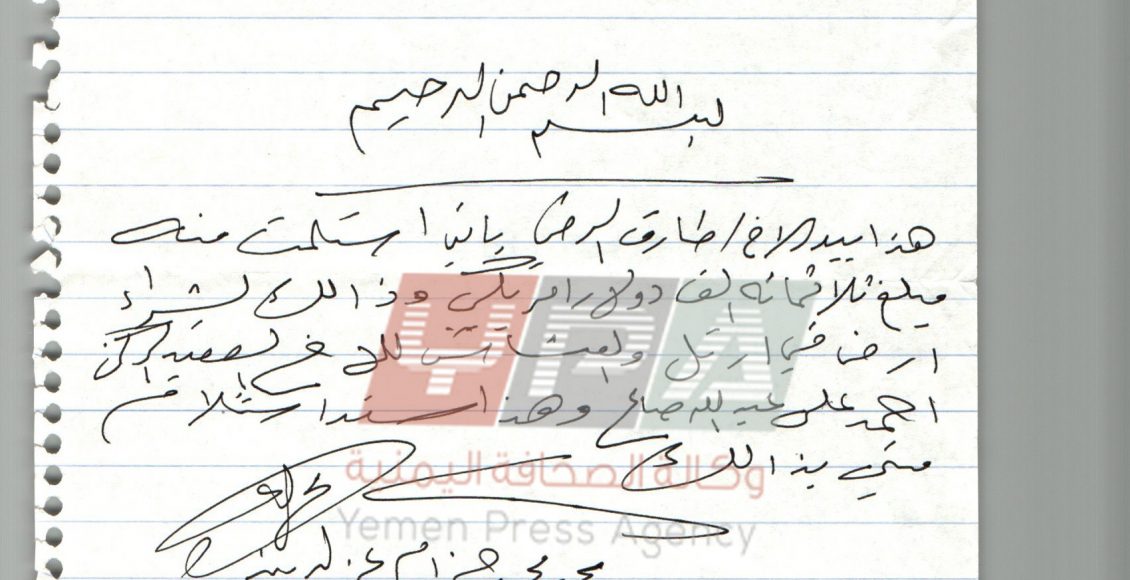 بسم الله الرحمن الرحيم
هذا بيد الاخ / طارق الرضي بانني استلمت منه
مبلغ ثلاثمائه الف دولار امريكي وذالك لشراء
ارض في اربل للاخ العميد الركن
احمد علي عبدالله صالح وهذا سند استلام
مني بذالك
YPA
وكالة الصحافة اليمنية
Yemen Press Agency
محمد حزام